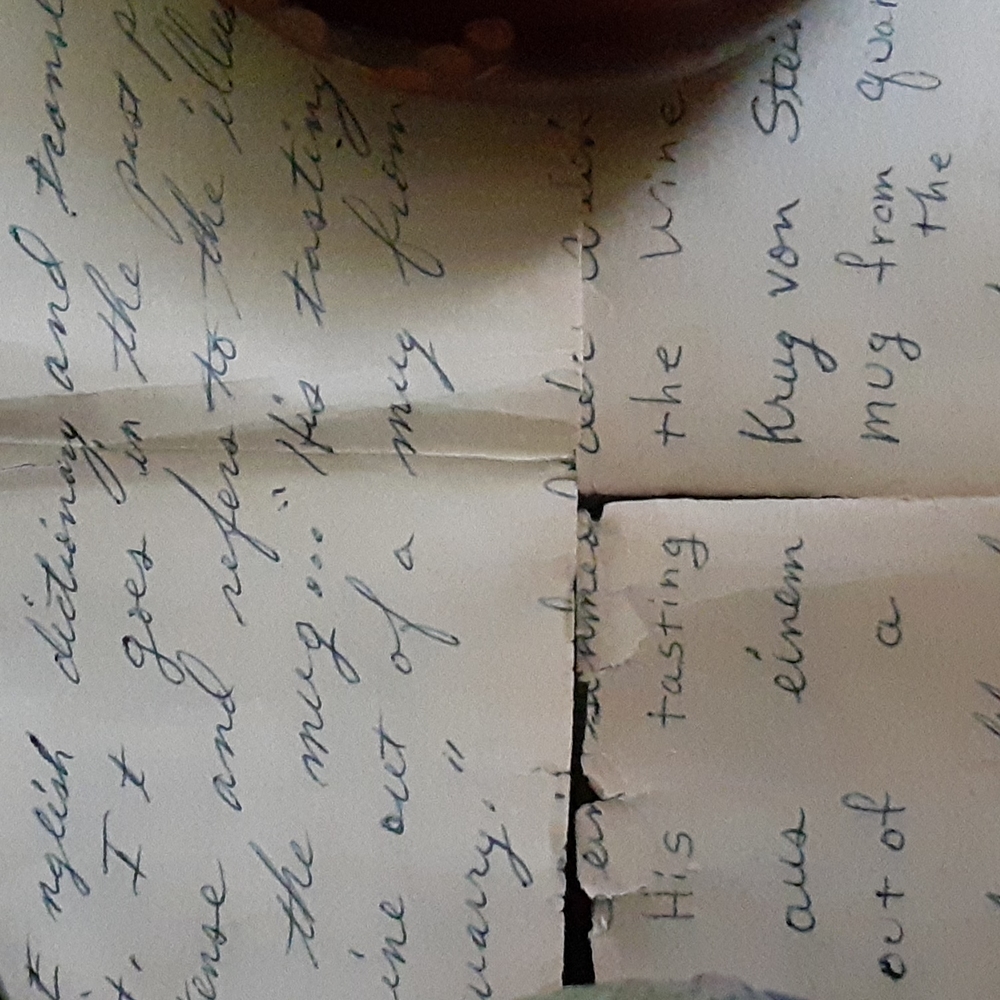 nglish dictionary and transl
t. It goes in the past p
ense and refers to the illu
the mug..." His tasting
ine out of a mug from
uarry."
His tasting the wine
aus einem Krug von Stein
out of a mug from quar
the